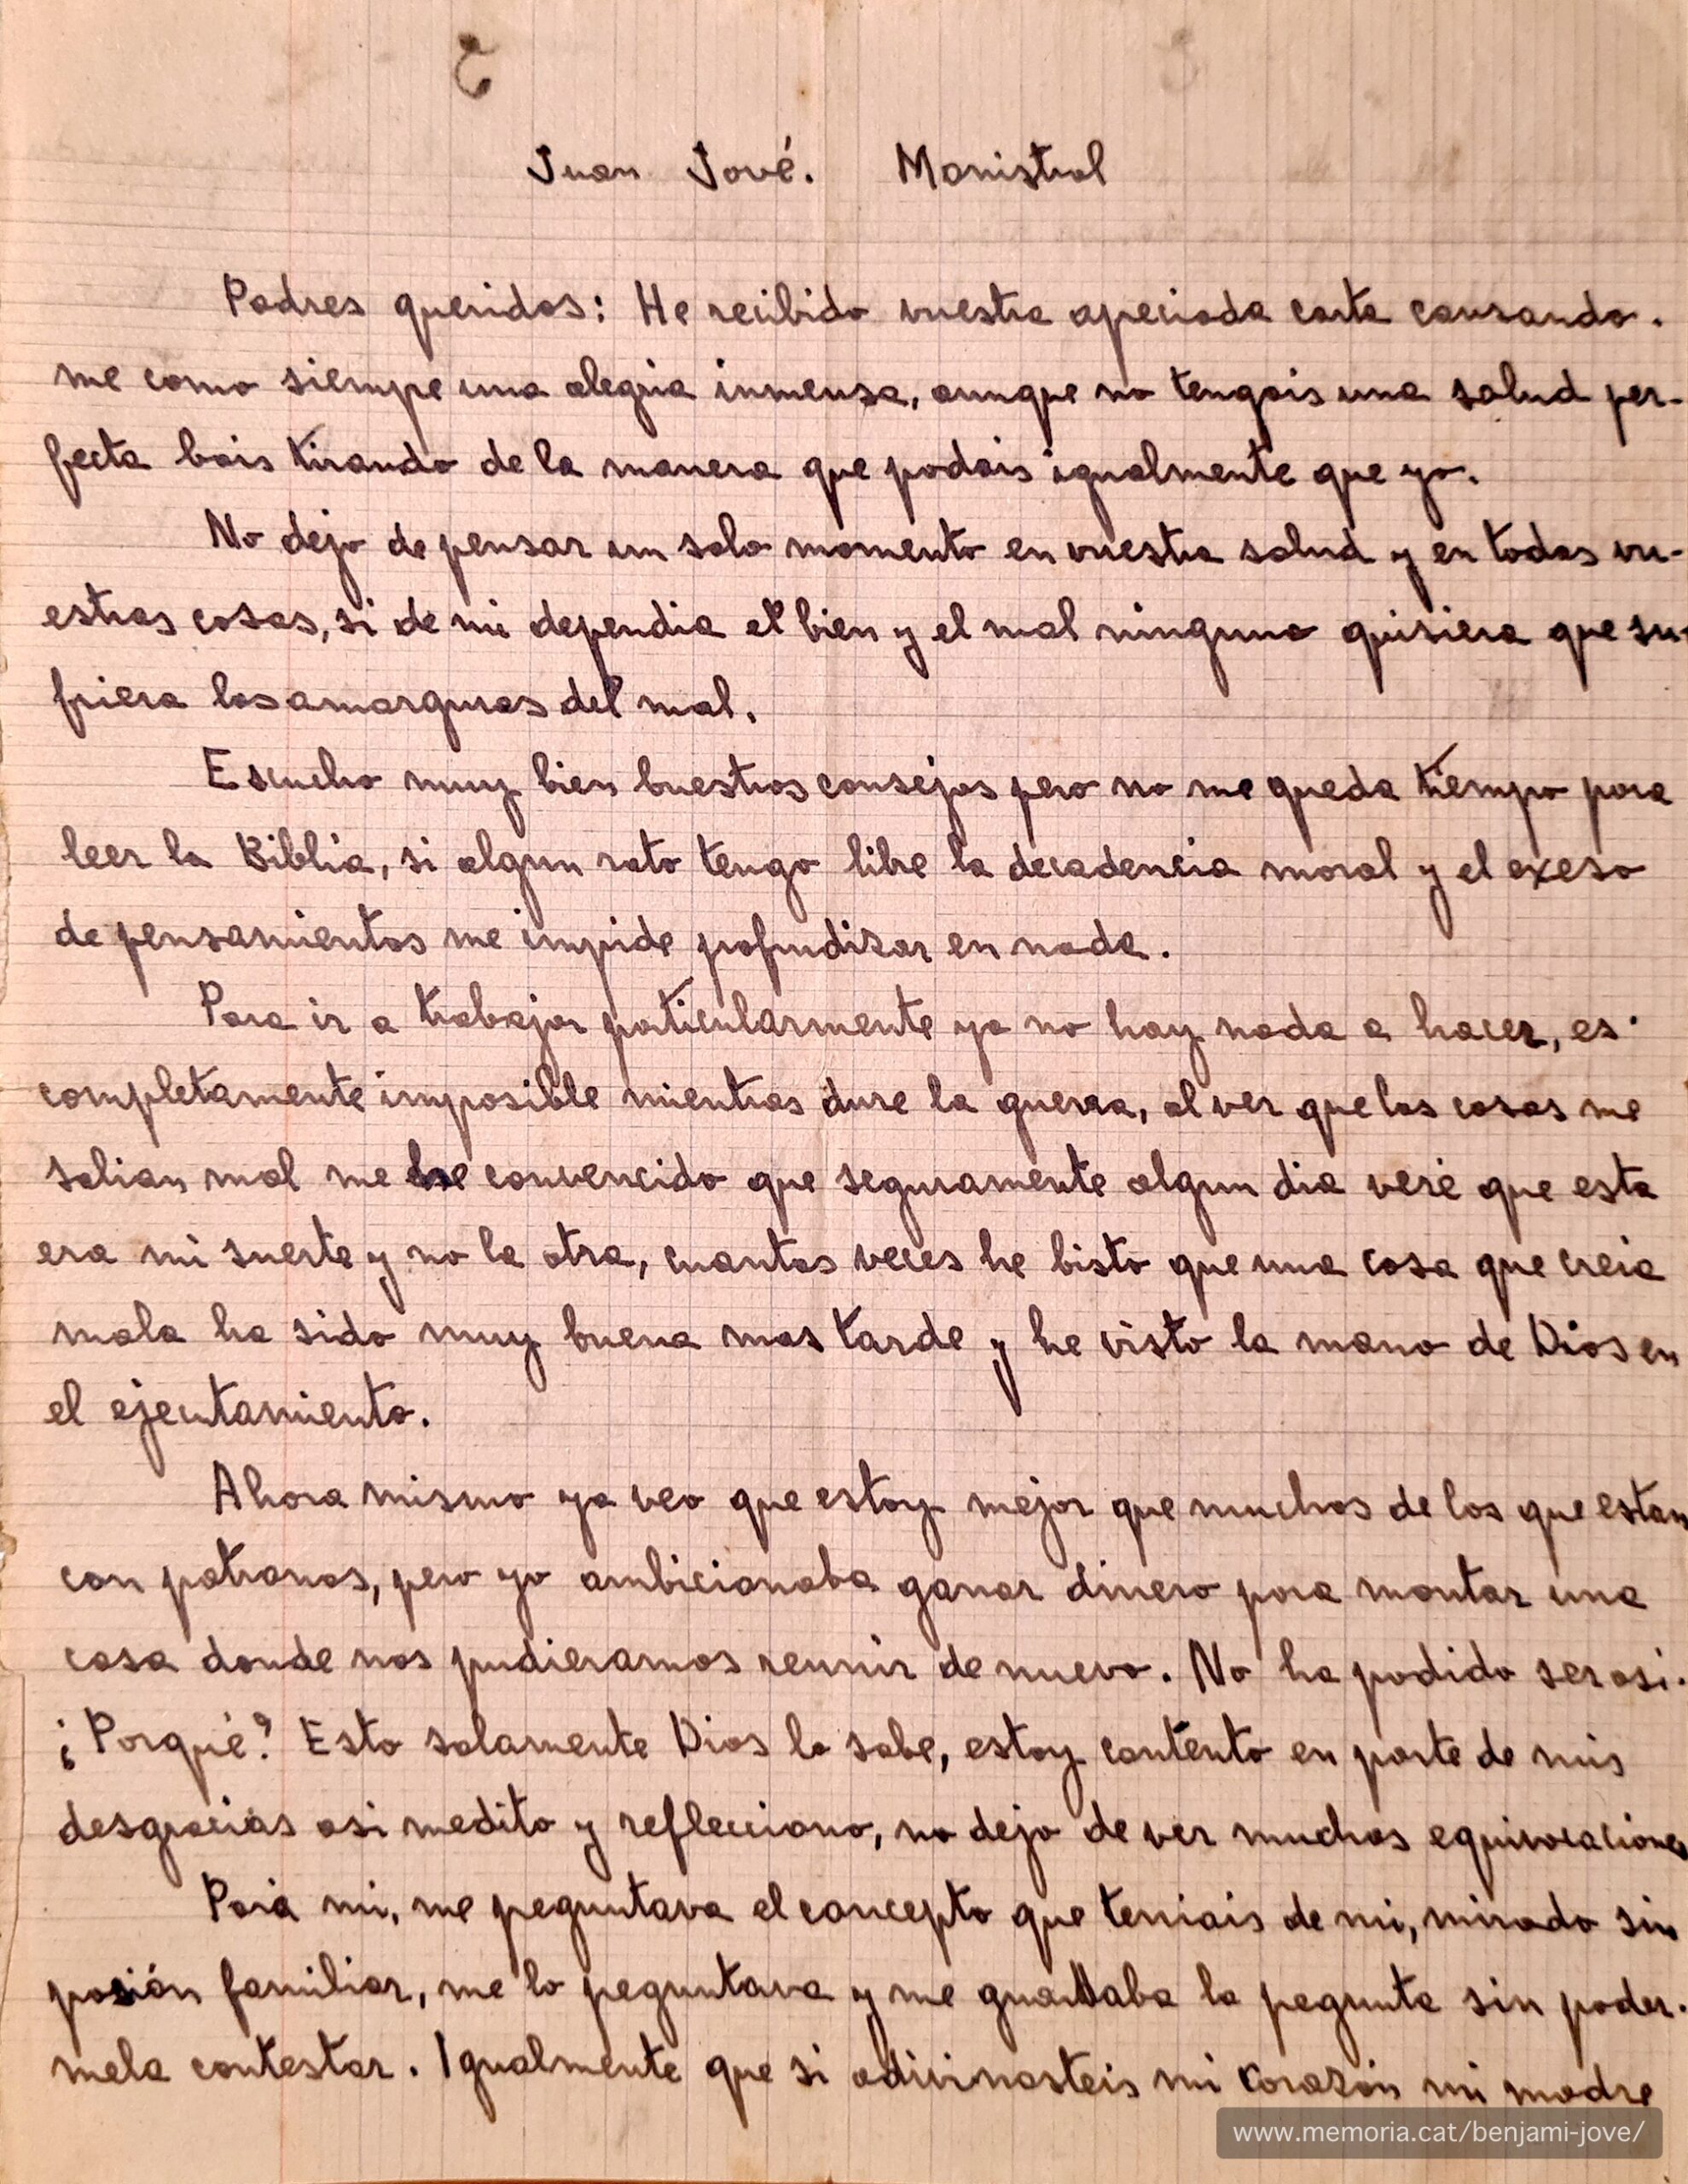 Juan Jové. Monistrol
Padres queridos: He recibido vuestra apeciada carta causando-
me como siempe una alegria inmensa, aunque no tengais una salud per-
fecta bais tirando de la manera que podais igualmente que yo.
No dejo de pensar un solo momento en vuestra salud y en todas vu-
estras cosas, si de mi dependia el bien y el mal ninguno quisiera que su-
friera las amarguras del mal.
Escucho muy bien buestros consejos pero no me queda tiempo para
leer la Biblia, si algun rato tengo libre la decadencia moral y el exeso
de pensamientos me impide pofundizar en nada.
Para ir a trabajar particularmente ya no hay nada a hacer, es
completamente imposible mientras dure la guerra, al ver que las cosas me
salian mal me he convencido que seguramente algun dia veré que esta
era mi suerte y no la otra, cuantas veces he bisto que una cosa que creia
mala ha sido muy buena mas tarde y he visto la mano de Dios en
el ejecutamiento.
Ahora mismo ya veo que estoy mejor que muchos de los que estan
con patronos, pero yo ambicionaba ganar dinero para montar una
casa donde nos pudieramos reunir de nuevo. No ha podido ser asi.
¿Porqué? Esto solamente Dios lo sabe, estoy contento en parte de mis
desgracias asi medito y reflecciono, no dejo de ver muchas equivocaciones
Para mi, me peguntava el concepto que teniais de mi, mirado sin
pasión familiar, me lo peguntava y me guardaba la pegunta sin poder-
mela contestar. Igualmente que si adivinasteis mi corazón mi madre
www.memoria.cat/benjami-jove/